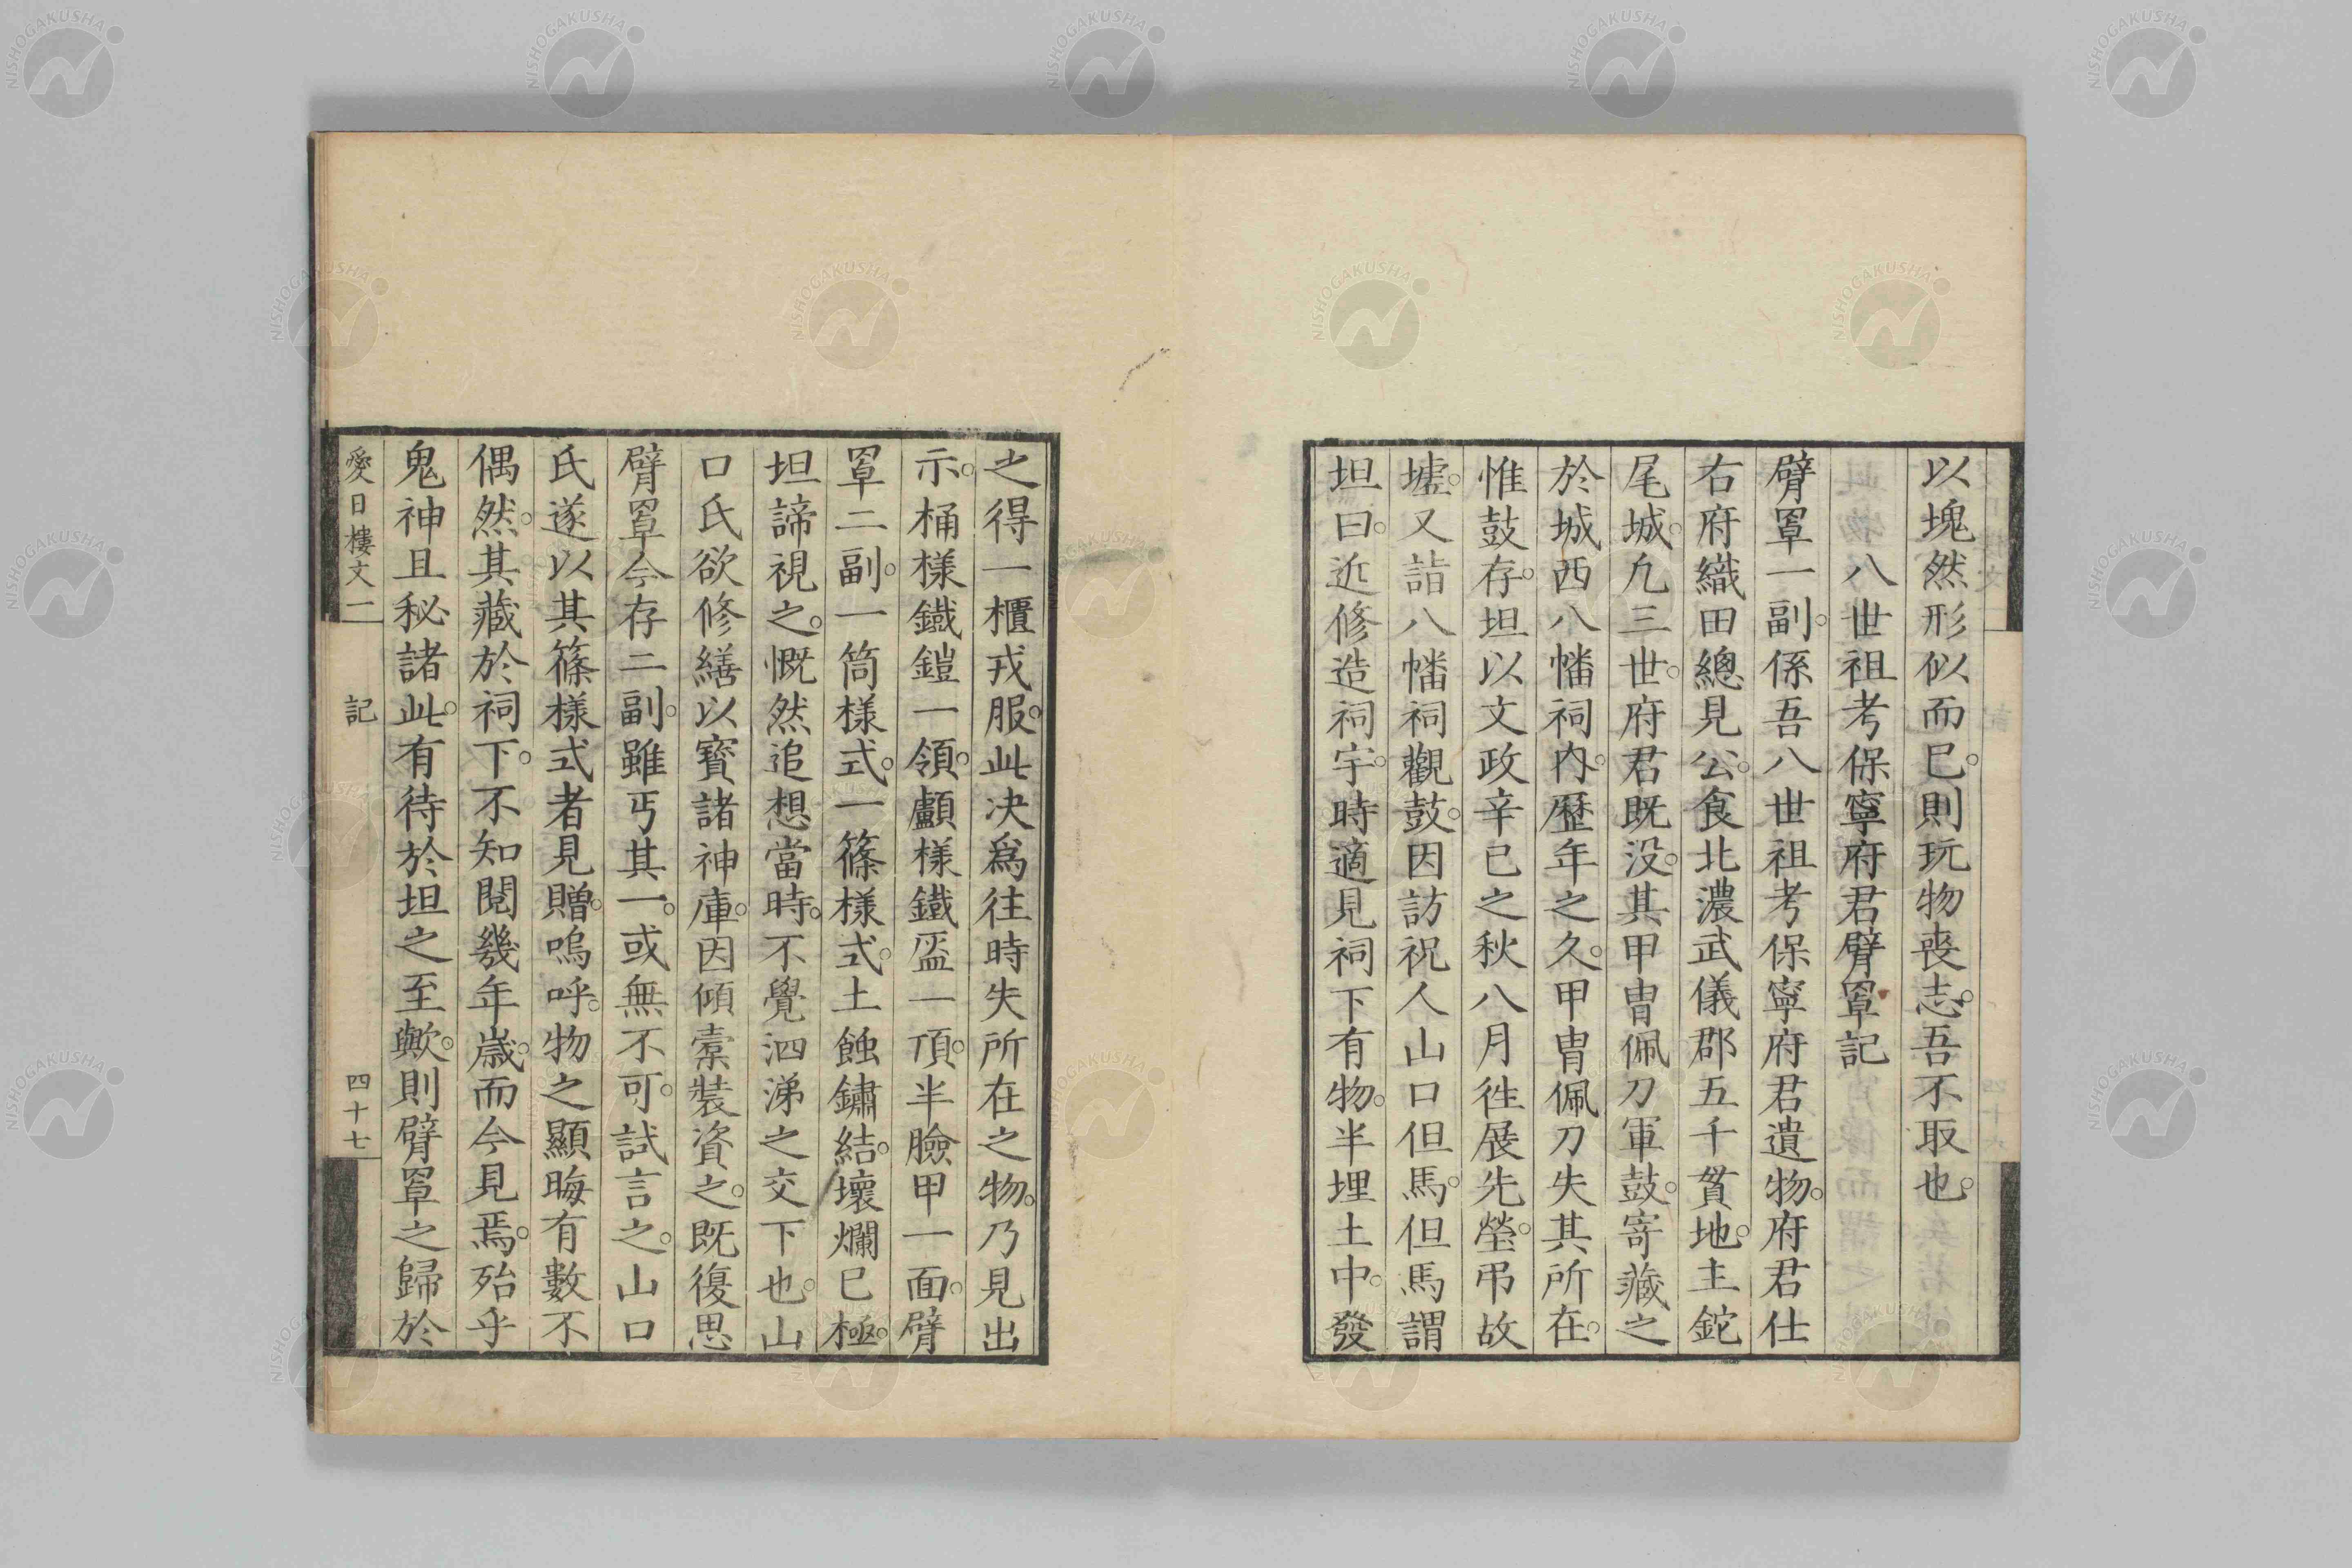 以塊然形似而已。則玩物喪志。吾不取也。
八世祖考保寧府君臂罩記
臂罩一副。係吾八世祖考保寧府君遺物。府君仕
右府織田總見公。食北濃武儀郡五千貫地。主鉈
尾城。凢三世。府君既没。其甲冑佩刀軍鼓。寄藏之
於城西八幡祠内。歷年之久。甲冑佩刀失其所在。
惟鼓存。坦以文政辛巳之秋八月徃展先塋。弔故
墟。又詣八幡祠觀鼓。因訪祝人山口但馬。但馬謂
坦曰。近修造祠宇。時適見祠下有物。半埋土中。發
之得一櫃戎服。此决爲往時失所在之物。乃見出
示。桶樣鐵鎧一領。顱樣鐵盔一頂。半臉甲一面。臂
罩二副。一筒樣式。一篠樣式。土蝕鏽結。壞爛已極。
坦諦視之。慨然追想當時。不覺泗涕之交下也。山
口氏欲修繕以寳諸神庫。因傾橐裝資之。既復思
臂罩今存二副。雖丐其一。或無不可。試言之。山口
氏遂以其篠樣式者見贈。嗚呼。物之顯晦有數不
偶然。其藏於祠下。不知閱幾年歲。而今見焉。殆乎
鬼神且秘諸此。有待於坦之至歟。則臂罩之歸於
愛日樓文二 記 四十七
NISHOGAKUSHA